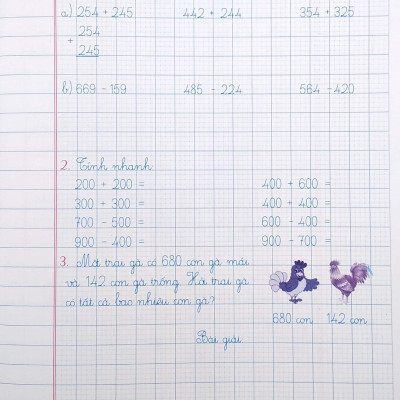 a) 254 + 245 442 + 244 354 + 325
254
+
245
b) 669 - 159 485 - 224 564 - 420
2. Tính nhanh
200 + 200 = 400 + 600 =
300 + 300 = 400 + 400 =
700 - 500 = 600 - 400 =
900 - 400 = 900 - 700 =
3. Một trại gà có 680 con gà mái
và 142 con gà trống. Hỏi trại gà
có tất cả bao nhiêu con gà?
680 con 142 con
Bài giải